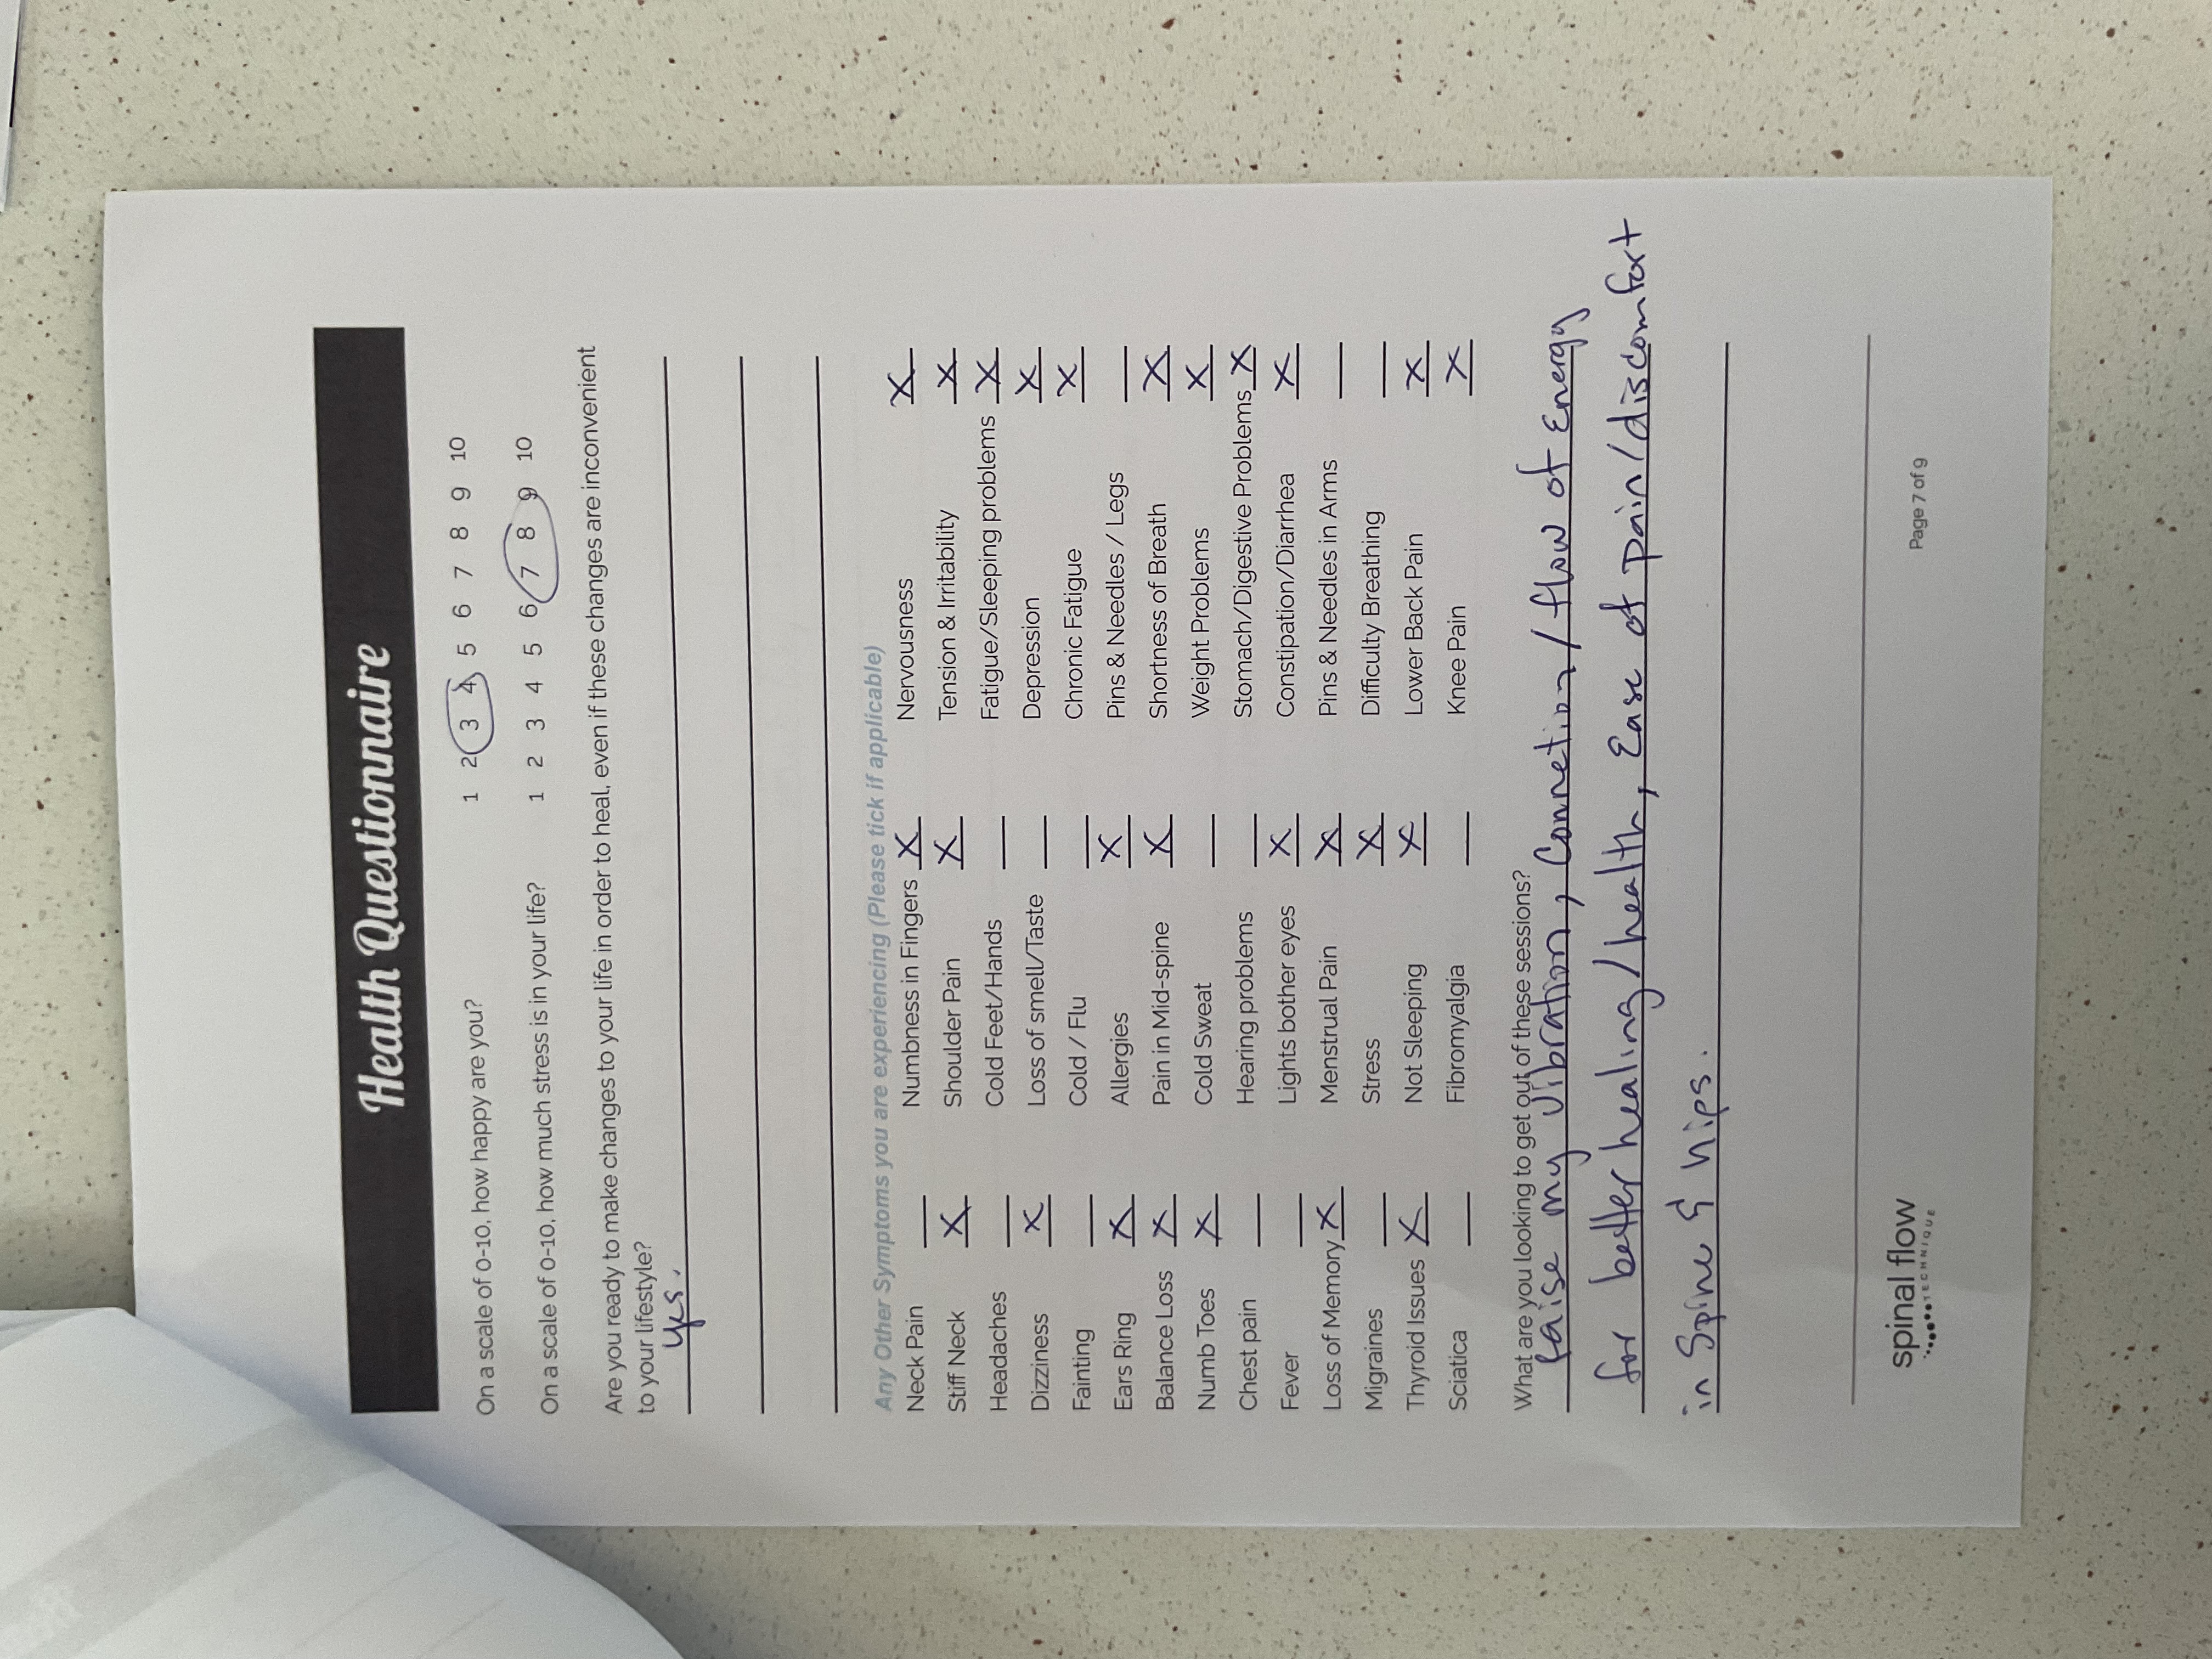 Health Questionnaire
On a scale of 0-10, how happy are you? 1 2 3 4 5 6 7 8 9 10
On a scale of 0-10, how much stress is in your life? 1 2 3 4 5 6 7 8 9 10
Are you ready to make changes to your life in order to heal, even if these changes are inconvenient
to your lifestyle?
yes.
Any Other Symptoms you are experiencing (Please tick if applicable)
Neck Pain __ Numbness in Fingers X Nervousness X
Stiff Neck X Shoulder Pain X Tension & Irritability X
Headaches __ Cold Feet/Hands __ Fatigue/Sleeping problems X
Dizziness X Loss of smell/Taste __ Depression X
Fainting __ Cold / Flu __ Chronic Fatigue X
Ears Ring X Allergies X Pins & Needles / Legs __
Balance Loss X Pain in Mid-spine X Shortness of Breath X
Numb Toes X Cold Sweat __ Weight Problems X
Chest pain __ Hearing problems __ Stomach/Digestive Problems X
Fever __ Lights bother eyes X Constipation/Diarrhea X
Loss of Memory X Menstrual Pain X Pins & Needles in Arms __
Migraines __ Stress X Difficulty Breathing __
Thyroid Issues X Not Sleeping X Lower Back Pain X
Sciatica __ Fibromyalgia __ Knee Pain X
What are you looking to get out of these sessions?
raise my vibration, Connetion / flow of Energy
for better healing/health, Ease of pain/discomfort
in Spine & hips.
spinal flow
TECHNIQUE
Page 7 of 9